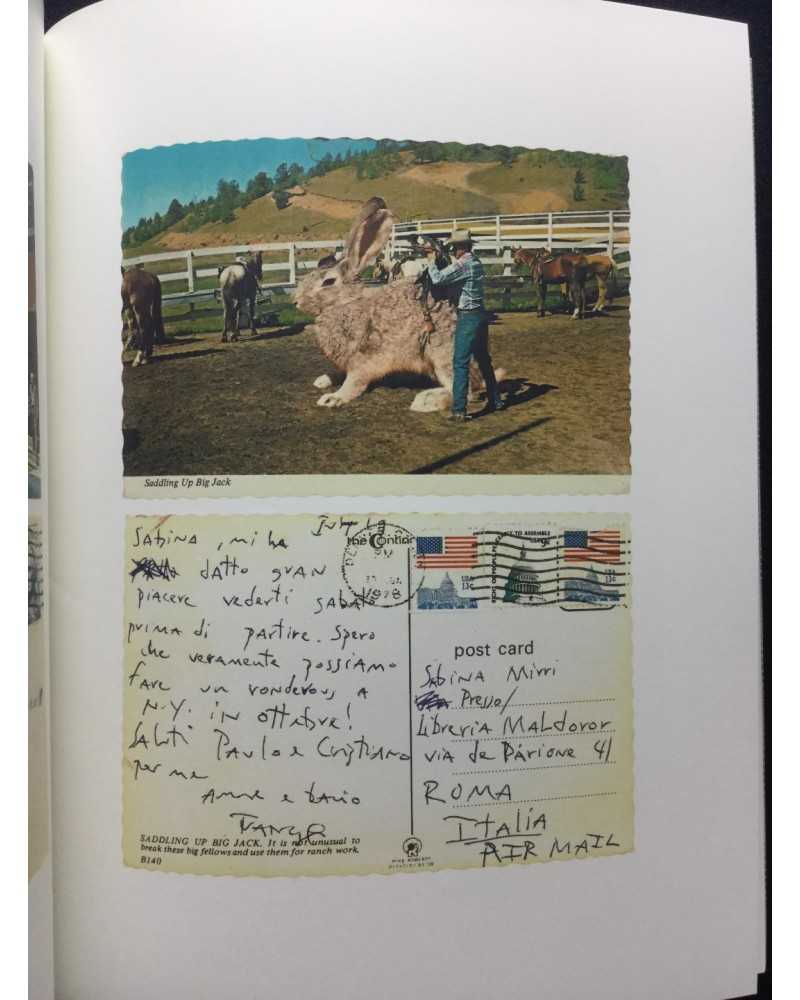 Saddling Up Big Jack
July 19
Sabina, mi ha
datto gran
piacere vederti sabato
prima di partire. Spero
che veramente possiamo
fare un rondevous a
N.Y. in ottobre!
Saluti Paulo e Cristiano
per me
e bacio
SADDLING UP BIG JACK. It is not unusual to
break these big fellows and use them for ranch work.
B140
1978
USA
13c
USA
13c
post card
Sabina Mirri
Presso/
Libreria Maldoror
via de Parione 41
ROMA
Italia
AIR MAIL